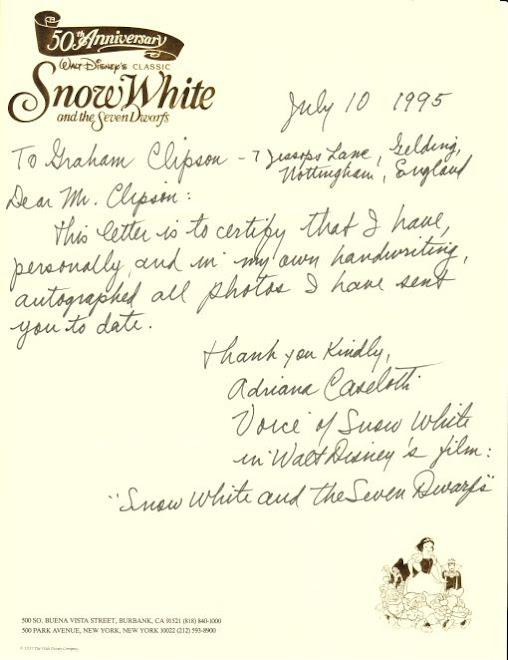 50th Anniversary
WALT DISNEY'S CLASSIC
Snow White
and the Seven Dwarfs
July 10 1995
To Graham Clipson - 7 Jessops Lane, Gelding,
Nottingham, England
Dear Mr. Clipson:
This letter is to certify that I have,
personally, and in my own handwriting,
autographed all photos I have sent
you to date.
Thank you Kindly,
Adriana Caselotti
Voice of Snow White
in Walt Disney's film:
"Snow White and the Seven Dwarfs"
500 SO. BUENA VISTA STREET, BURBANK, CA 91521 (818) 840-1000
500 PARK AVENUE, NEW YORK, NEW YORK 10022 (212) 593-8900
© 1937 The Walt Disney Company